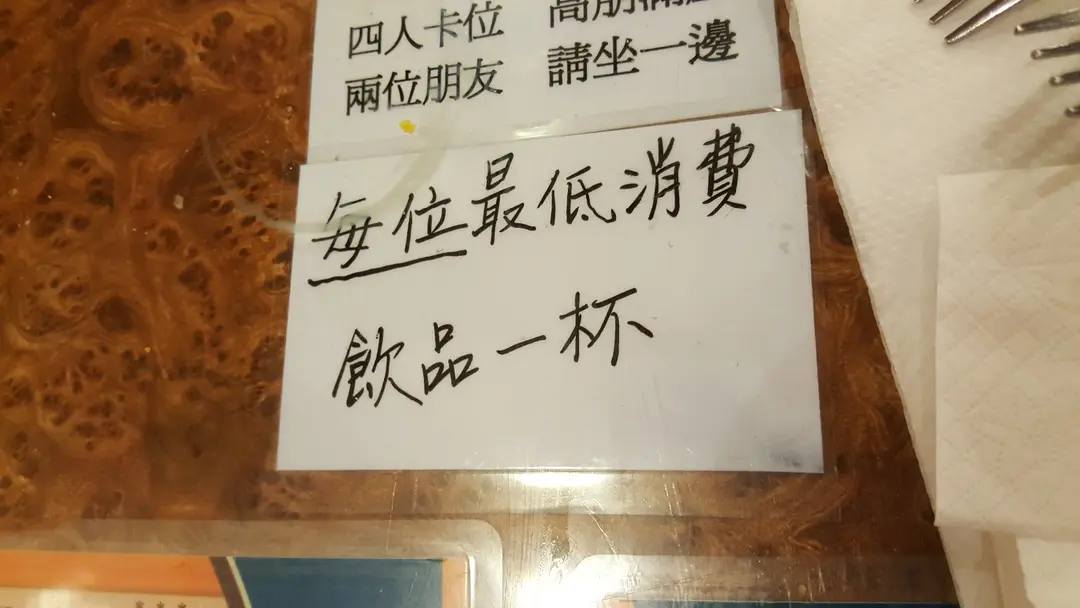 四人卡位 高朋滿座
兩位朋友 請坐一邊
每位最低消費
飲品一杯
***